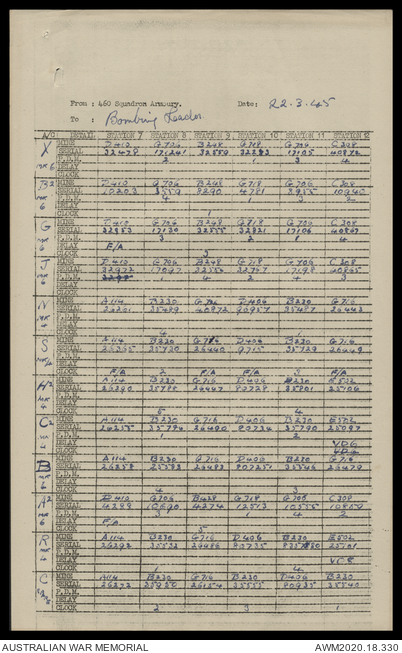 From : 460 Squadron Armoury. Date: 22.3.45
To : Bombing Leader
A/C DETAIL STATION 7 STATION 8 STATION 9 STATION 10 STATION 11 STATION 12
X MINE D410 G706 B248 G718 G706 C308
MK 6 SERIAL 32478 171241 32550 32283 17105 40872
P.D.M. 2 1 3 4
DELAY
CLOCK
B2 MINE D410 G706 B248 G718 G706 C308
MK 6 SERIAL 10203 3559 8290 4781 3955 10940
P.D.M. 4 1 3 2
DELAY
CLOCK
G MINE D410 G706 B248 G718 G706 C308
MK 6 SERIAL 32953 17130 32555 32821 17106 40867
P.D.M. 3 2 1 4
DELAY F/A
CLOCK 3
J MINE D410 G706 B248 G718 G706 C308
MK 6 SERIAL 32972 17097 32556 32747 17198 40865
P.D.M. 1 4 2 4 3
DELAY
CLOCK
N MINE A114 B230 G706 D406 B230 G716
MK 4 SERIAL 26201 35489 40872 80957 35487 26443
P.D.M.
DELAY
CLOCK 4 1
S MINE A114 B230 G716 D406 B230 G716
SERIAL 26255 35730 26440 9715 35729 26449
P.D.M.
DELAY
CLOCK F/A 2 F/A F/A 3 F/A
H2 MINE A114 B230 G716 D406 B230 E502
MK 4 SERIAL 26290 35788 26447 80728 35801 25106
P.D.M.
DELAY
CLOCK 5 4
C2 MINE A114 B230 G716 D406 B230 E502
SERIAL 26255 35794 26490 80734 35790 25097
P.D.M. 1 2
DELAY VD6
CLOCK
B MINE A114 B230 G716 D406 B230 G716
MK 6 SERIAL 26258 25583 26483 807251 35546 26479
P.D.M.
DELAY
CLOCK 4 3
A2 MINE D410 G706 B428 G718 G706 C308
MK 6 SERIAL 4299 10690 4274 12513 10555 10859
P.D.M. 3 1 4 2
DELAY F/A
CLOCK 5
R MINE A114 B230 G716 D406 B230 E502
MK 4 SERIAL 26292 35532 26486 80735 25101
P.D.M.
DELAY VE8
CLOCK 1 4
C MINE A114 B230 G716 B230 D406 B230
SERIAL 26272 35950 26154 35555 80935 35540
P.D.M.
DELAY
CLOCK 2 3 1
AUSTRALIAN WAR MEMORIAL AWM2020.18.330